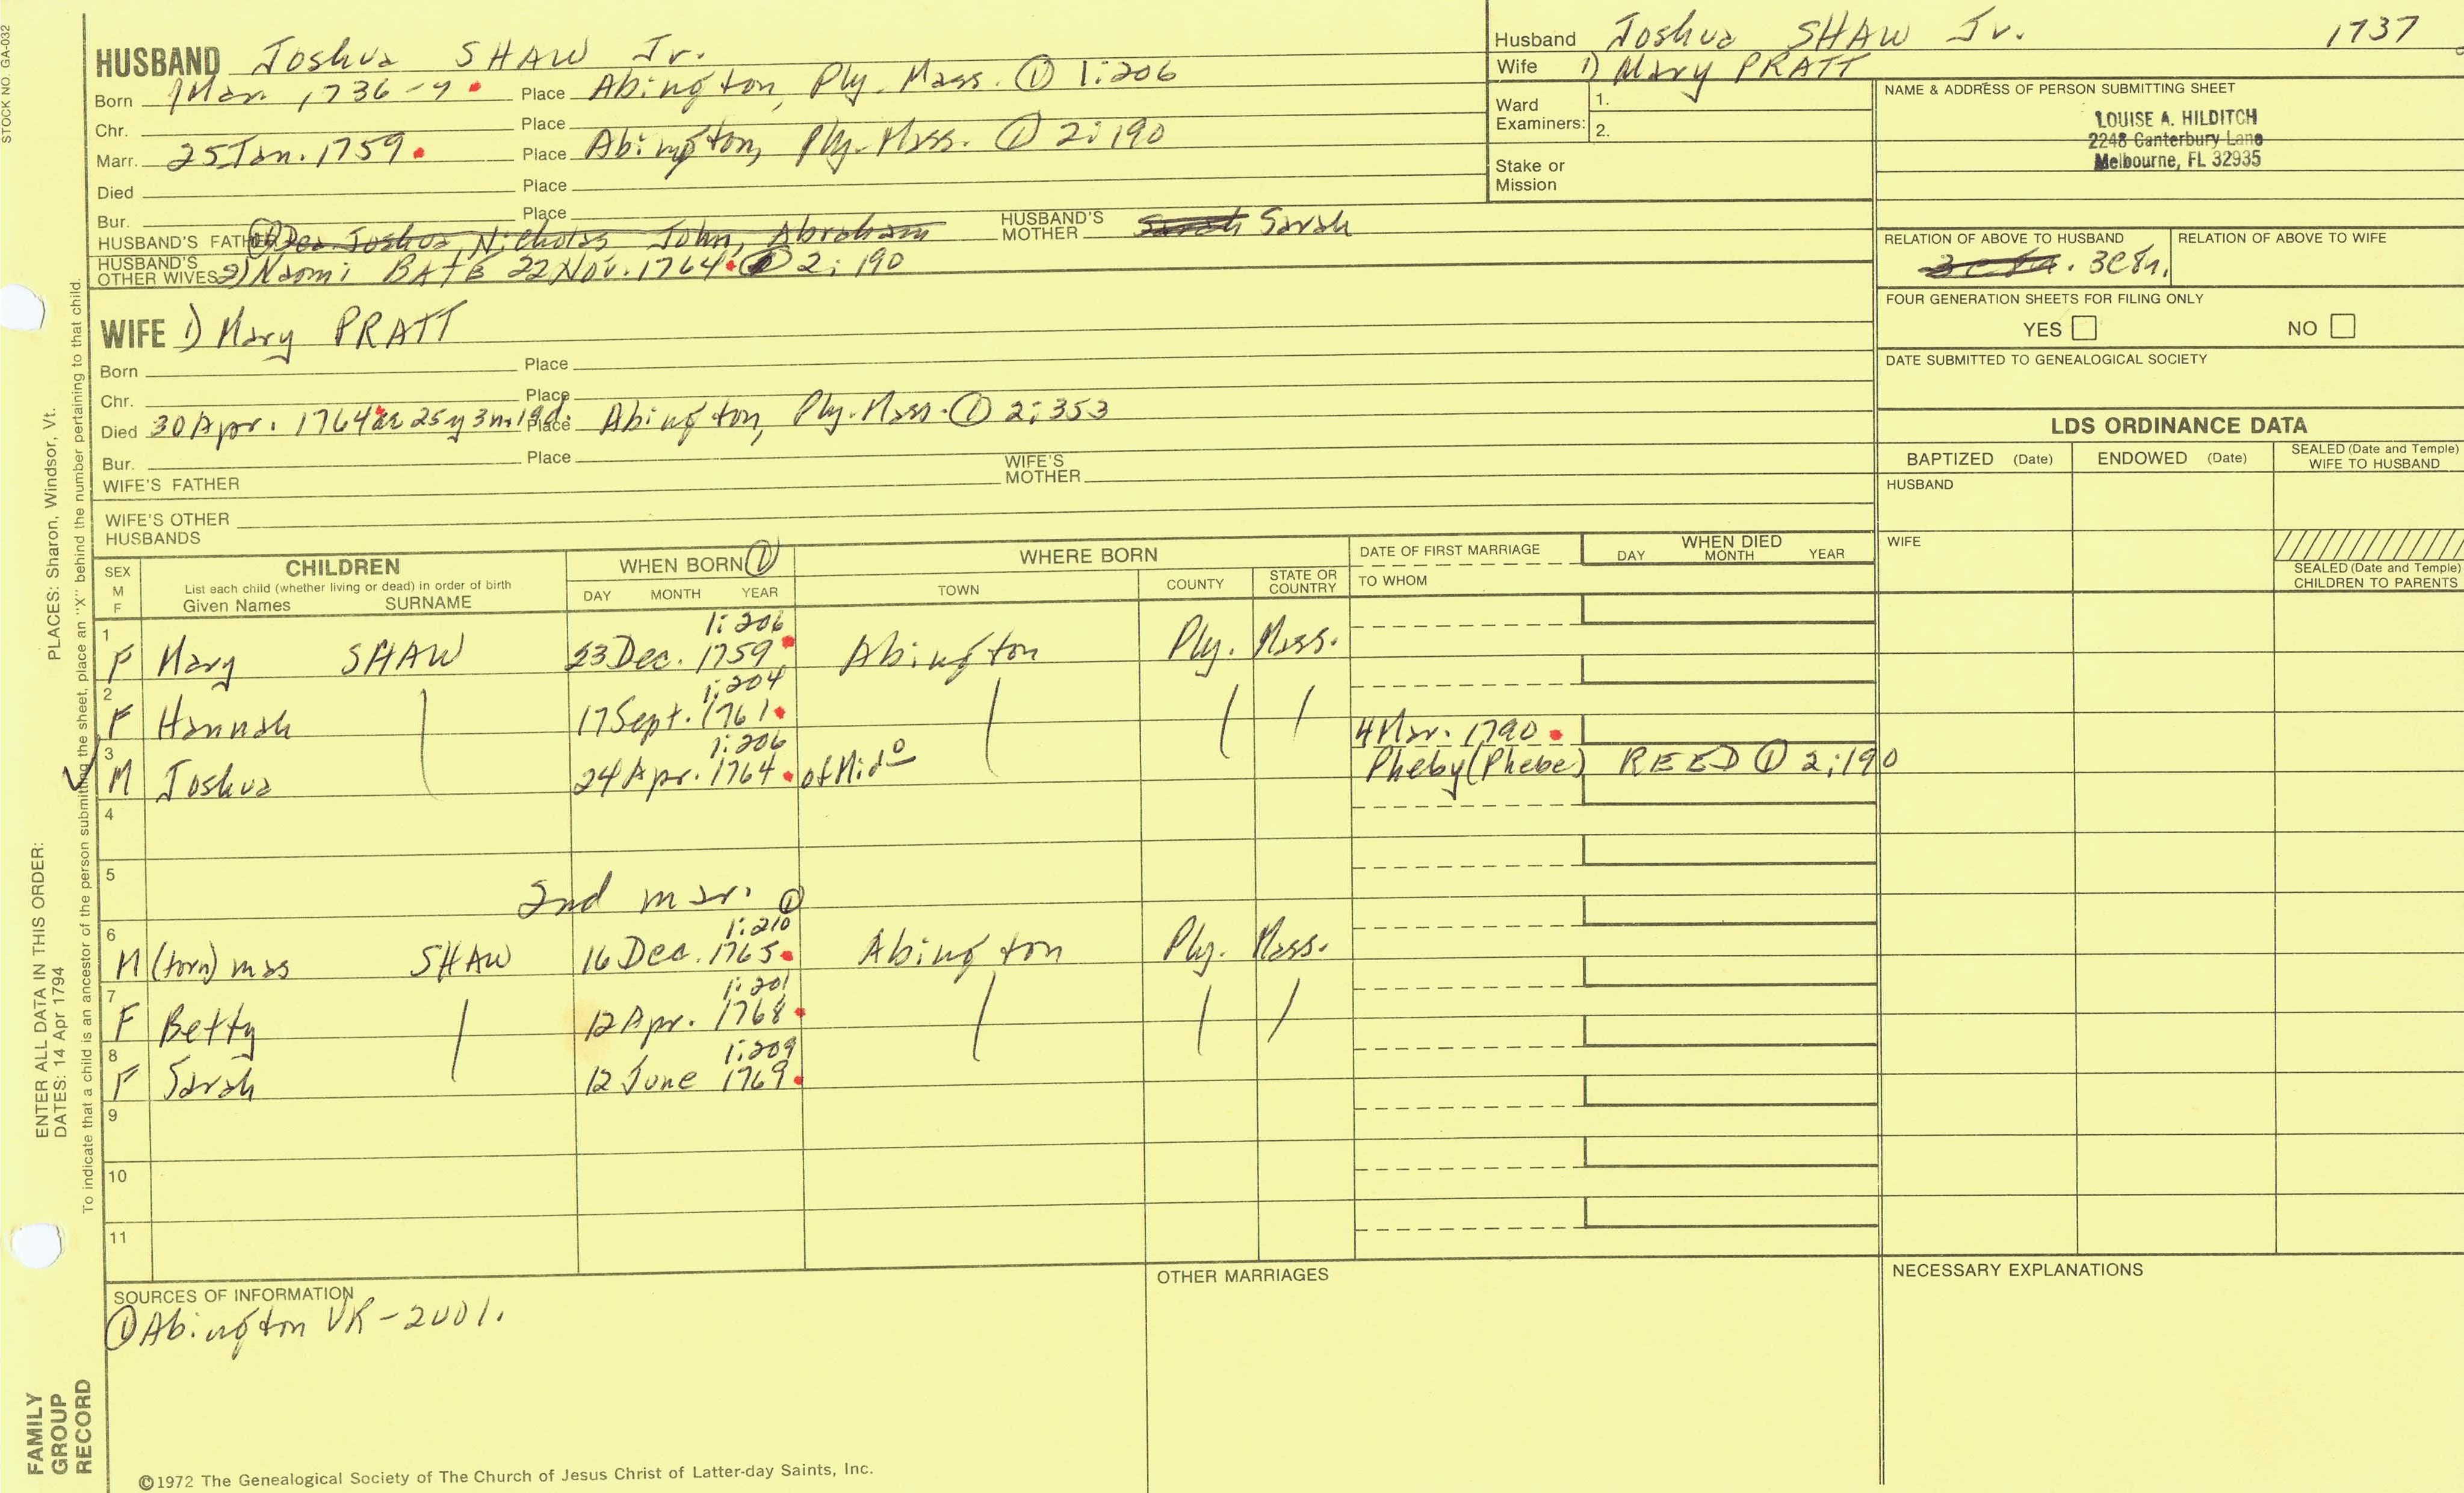 STOCK NO. GA-032
HUSBAND Joshua SHAW Jr.
Born 1 Mar. 1736-7 Place Abington, Ply. Mass. ① 1:206
Chr. Place
Marr. 25 Jan. 1759. Place Abington, Ply. Mass. ① 2:190
Died Place
Bur. Place
HUSBAND'S FATHER Dea Joshua, Nicholas John, Abraham HUSBAND'S MOTHER Sarah Sarah
HUSBAND'S OTHER WIVES 2) Naomi BATE 22 Nov. 1764. ① 2:190
WIFE 1) Mary PRATT
Born Place
Chr. Place
Died 30 Apr. 1764 ae 25y 3m 19d. Place Abington, Ply. Mass. ① 2:353
Bur. Place
WIFE'S FATHER WIFE'S MOTHER
WIFE'S OTHER HUSBANDS
Husband Joshua SHAW Jr. 1737
Wife 1) Mary PRATT
Ward Examiners: 1.
2.
Stake or Mission
NAME & ADDRESS OF PERSON SUBMITTING SHEET
LOUISE A. HILDITCH
2248 Canterbury Lane
Melbourne, FL 32935
RELATION OF ABOVE TO HUSBAND RELATION OF ABOVE TO WIFE
3C8R.
FOUR GENERATION SHEETS FOR FILING ONLY
YES NO
DATE SUBMITTED TO GENEALOGICAL SOCIETY
LDS ORDINANCE DATA
BAPTIZED (Date) ENDOWED (Date) SEALED (Date and Temple) WIFE TO HUSBAND
HUSBAND
WIFE
SEALED (Date and Temple) CHILDREN TO PARENTS
SEX M F CHILDREN List each child (whether living or dead) in order of birth Given Names SURNAME WHEN BORN ① DAY MONTH YEAR WHERE BORN TOWN COUNTY STATE OR COUNTRY DATE OF FIRST MARRIAGE TO WHOM WHEN DIED DAY MONTH YEAR
1:206
1 F Mary SHAW 23 Dec. 1759 Abington Ply. Mass.
1:204
2 F Hannah 17 Sept. 1761.
1:206 4 Mar. 1790.
3 M Joshua 24 Apr. 1764. of Mido Pheby (Phebe) REED ① 2:190
4
5
2nd mar. ①
1:210
6 M (torn) mas SHAW 16 Dec. 1765. Abington Ply. Mass.
1:201
7 F Betty 12 Apr. 1768.
1:209
8 F Sarah 12 June 1769.
9
10
11
SOURCES OF INFORMATION
① Abington VR-2001.
OTHER MARRIAGES
NECESSARY EXPLANATIONS
©1972 The Genealogical Society of The Church of Jesus Christ of Latter-day Saints, Inc.
PLACES: Sharon, Windsor, Vt.
ENTER ALL DATA IN THIS ORDER:
DATES: 14 Apr 1794
To indicate that a child is an ancestor of the person submitting the sheet, place an "X" behind the number pertaining to that child.
FAMILY
GROUP
RECORD